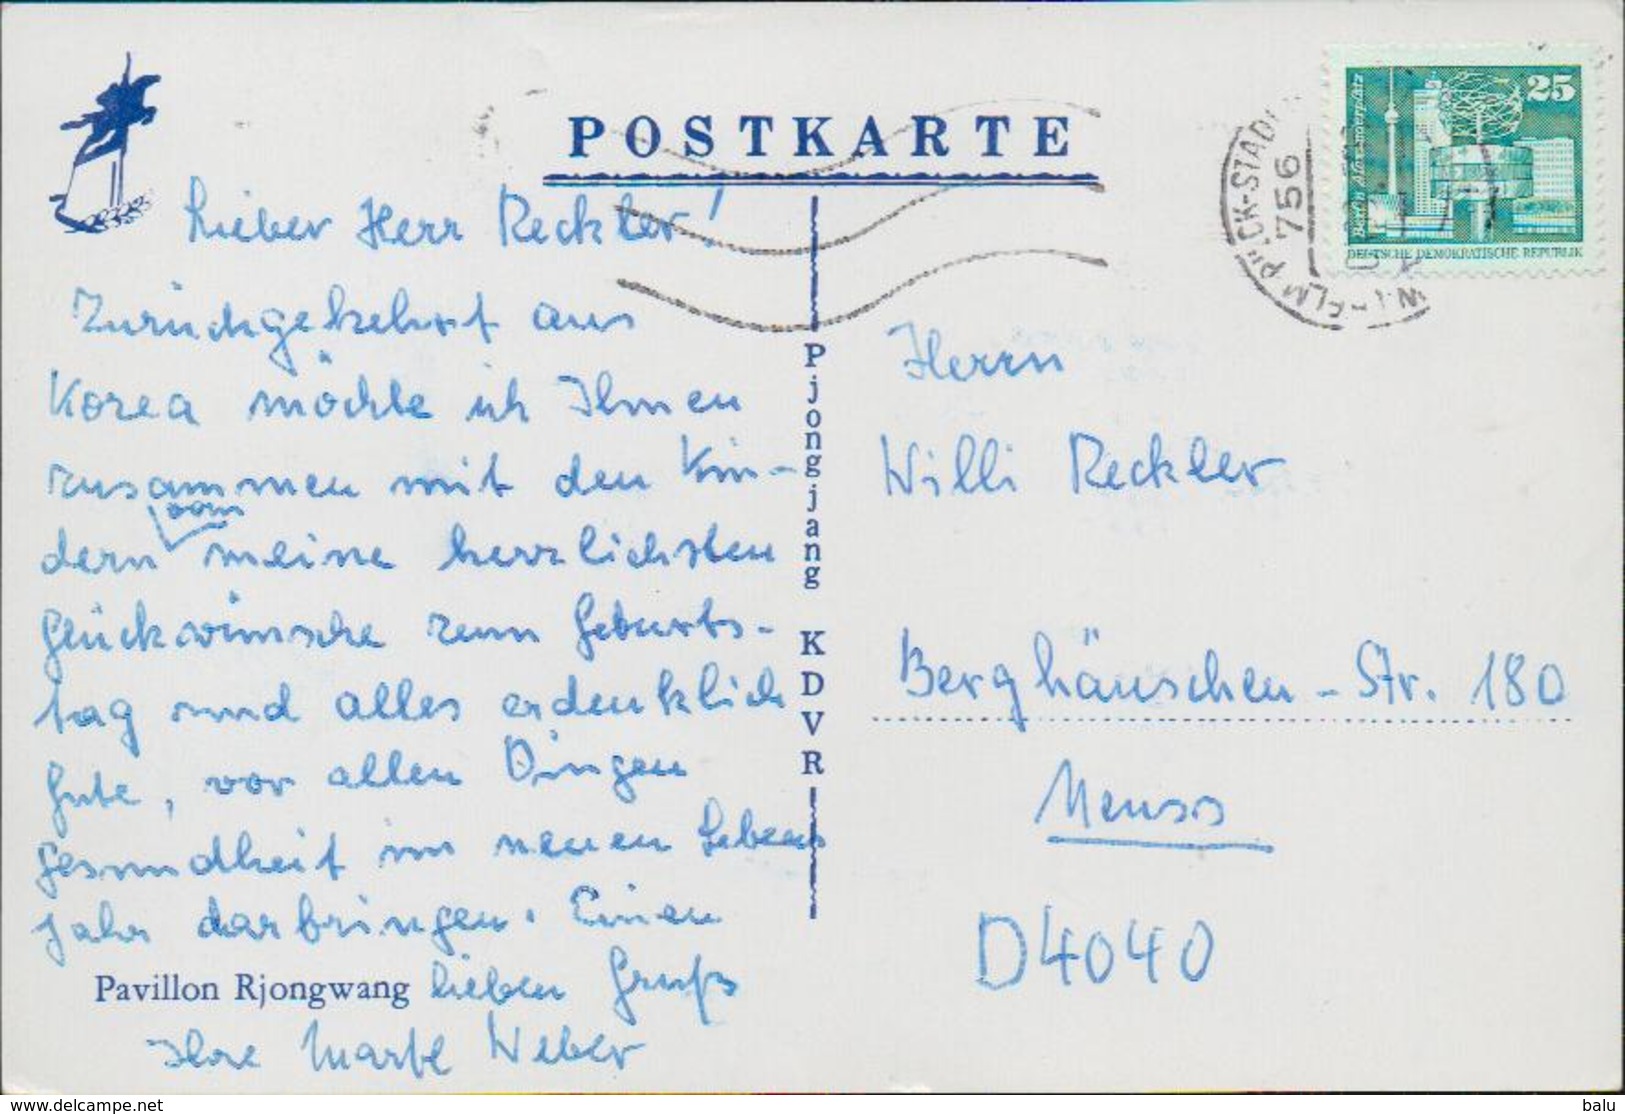 POSTKARTE
25
Berlin, Alexanderplatz
DEUTSCHE DEMOKRATISCHE REPUBLIK
PIECK-STADT
756
WILHELM
Lieber Herr Reckter!
Zurückgekehrt aus
Korea möchte ich Ihnen
zusammen mit den Kin-
dern meine herzlichsten
Glückwünsche zum Geburts-
tag und alles erdenklich
Gute, vor allen Dingen
Gesundheit im neuen Lebens
jahr darbringen. Einen
lieben Gruß
Ihre Weber
Pavillon Rjongwang
Pjongjang KDVR
Herrn
Willi Reckter
Berghäuschen-Str. 180
Neuss
D4040
delcampe.net
balu